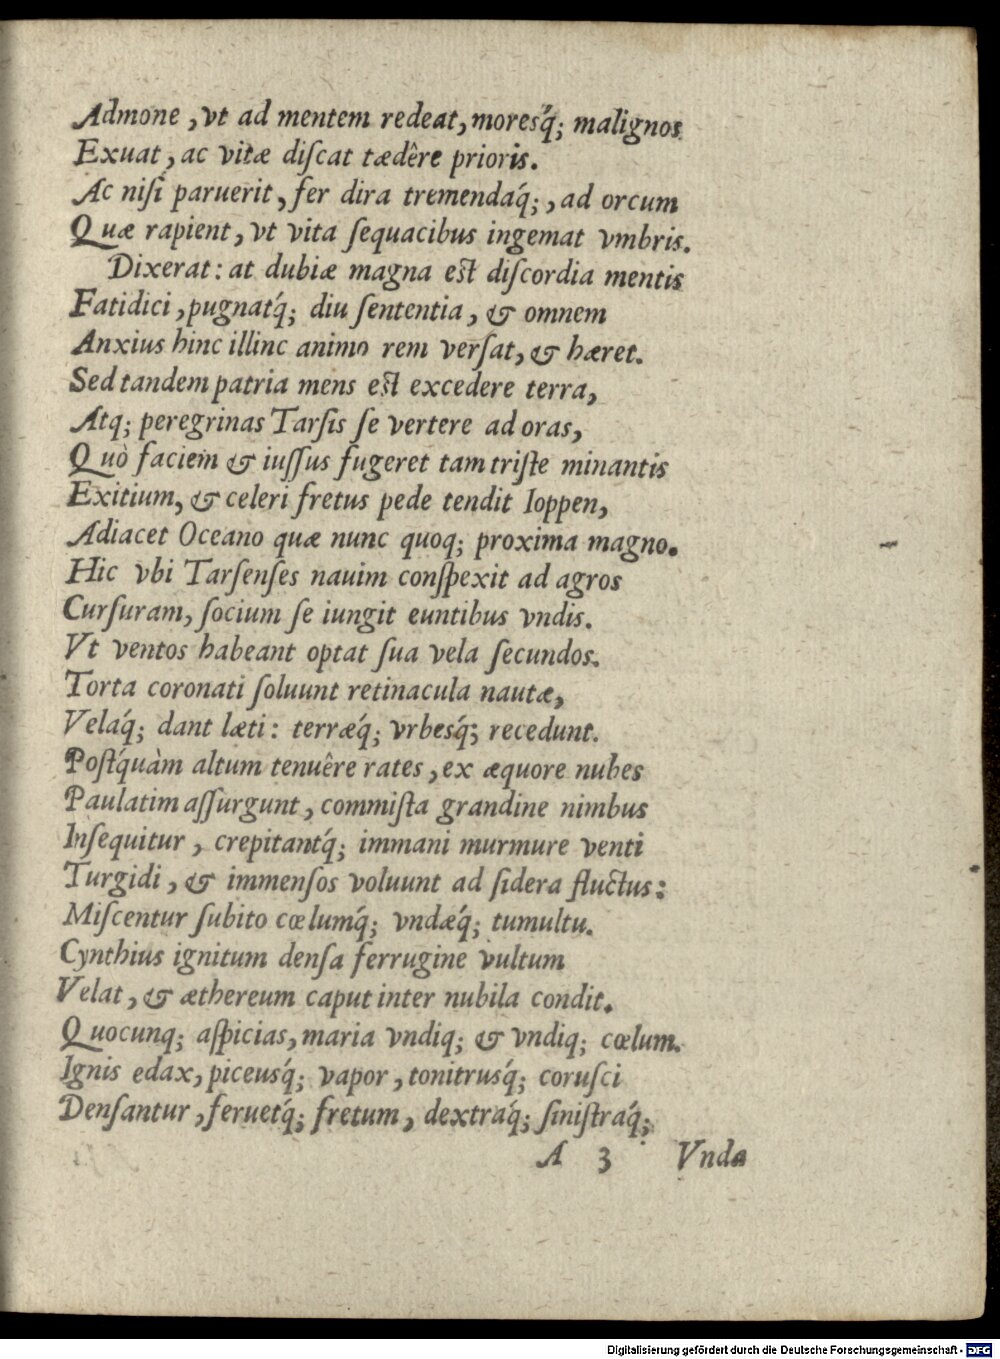 Admone, vt ad mentem redeat, moresq́; malignos
Exuat, ac vitæ diſcat tædêre prioris.
Ac niſi paruerit, fer dira tremendaq́;, ad orcum
Quæ rapient, vt vita ſequacibus ingemat vmbris.
Dixerat: at dubiæ magna eſt diſcordia mentis
Fatidici, pugnatq́; diu ſententia, & omnem
Anxius hinc illinc animo rem verſat, & hæret.
Sed tandem patria mens eſt excedere terra,
Atq; peregrinas Tarſis ſe vertere ad oras,
Quò faciem & iuſſus fugeret tam triſte minantis
Exitium, & celeri fretus pede tendit Ioppen,
Adiacet Oceano quæ nunc quoq; proxima magno.
Hic vbi Tarſenſes nauim conſpexit ad agros
Curſuram, ſocium ſe iungit euntibus vndis.
Vt ventos habeant optat ſua vela ſecundos.
Torta coronati ſoluunt retinacula nautæ,
Velaq́; dant læti: terræq́; vrbesq́; recedunt.
Poſtq́uàm altum tenuêre rates, ex æquore nubes
Paulatim aſſurgunt, commiſta grandine nimbus
Inſequitur, crepitantq́; immani murmure venti
Turgidi, & immenſos voluunt ad ſidera fluctus:
Miſcentur ſubito cœlumq́; vndæq́; tumultu.
Cynthius ignitum denſa ferrugine vultum
Velat, & æthereum caput inter nubila condit.
Quocunq; aſpicias, maria vndiq; & vndiq; cœlum.
Ignis edax, piceusq́; vapor, tonitrusq́; coruſci
Denſantur, feruetq́; fretum, dextraq́; ſiniſtraq́;
A 3 Vnda
Digitalisierung gefördert durch die Deutsche Forschungsgemeinschaft - DFG